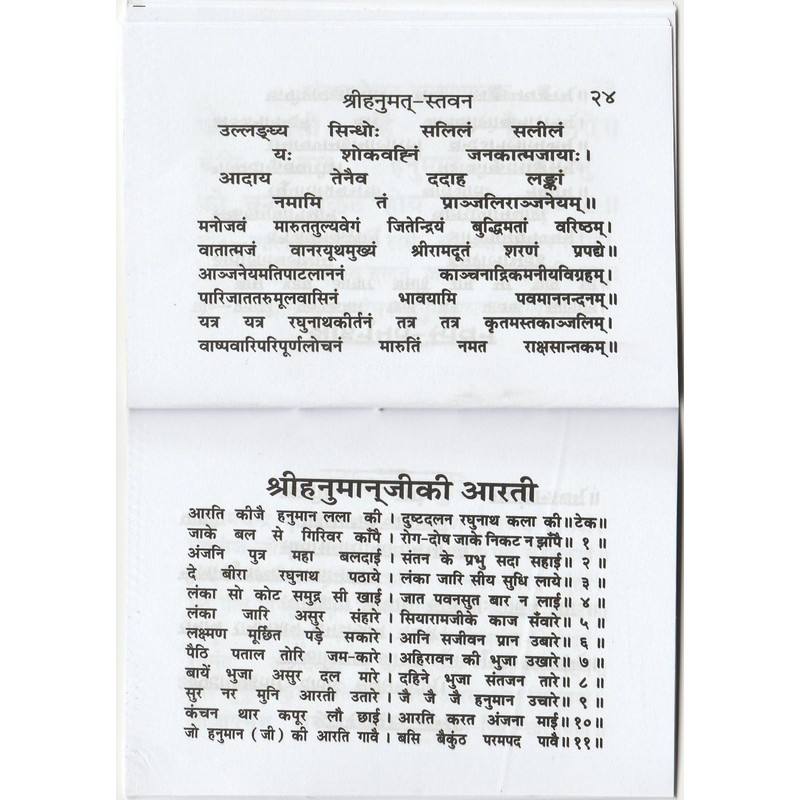 श्रीहनुमत्-स्तवन २४
उल्लङ्घ्य सिन्धोः सलिलं सलीलं
यः शोकवह्निं जनकात्मजायाः।
आदाय तेनैव ददाह लङ्कां
नमामि तं प्राञ्जलिराञ्जनेयम्॥
मनोजवं मारुततुल्यवेगं जितेन्द्रियं बुद्धिमतां वरिष्ठम्।
वातात्मजं वानरयूथमुख्यं श्रीरामदूतं शरणं प्रपद्ये॥
आञ्जनेयमतिपाटलाननं काञ्चनाद्रिकमनीयविग्रहम्।
पारिजाततरुमूलवासिनं भावयामि पवमाननन्दनम्॥
यत्र यत्र रघुनाथकीर्तनं तत्र तत्र कृतमस्तकाञ्जलिम्।
वाष्पवारिपरिपूर्णलोचनं मारुतिं नमत राक्षसान्तकम्॥
श्रीहनुमान्‌जीकी आरती
आरति कीजै हनुमान लला की। दुष्टदलन रघुनाथ कला की॥टेक॥
जाके बल से गिरिवर काँपै। रोग-दोष जाके निकट न झाँपै॥ १ ॥
अंजनि पुत्र महा बलदाई। संतन के प्रभु सदा सहाई॥ २ ॥
दे बीरा रघुनाथ पठाये। लंका जारि सीय सुधि लाये॥ ३ ॥
लंका सो कोट समुद्र सी खाई। जात पवनसुत बार न लाई॥ ४ ॥
लंका जारि असुर संहारे। सियारामजीके काज सँवारे॥ ५ ॥
लक्ष्मण मूर्छित पड़े सकारे। आनि सजीवन प्रान उबारे॥ ६ ॥
पैठि पताल तोरि जम-कारे। अहिरावन की भुजा उखारे॥ ७ ॥
बायें भुजा असुर दल मारे। दहिने भुजा संतजन तारे॥ ८ ॥
सुर नर मुनि आरती उतारे। जै जै जै हनुमान उचारे॥ ९ ॥
कंचन थार कपूर लौ छाई। आरति करत अंजना माई॥१०॥
जो हनुमान (जी) की आरति गावै। बसि बैकुंठ परमपद पावै॥११॥